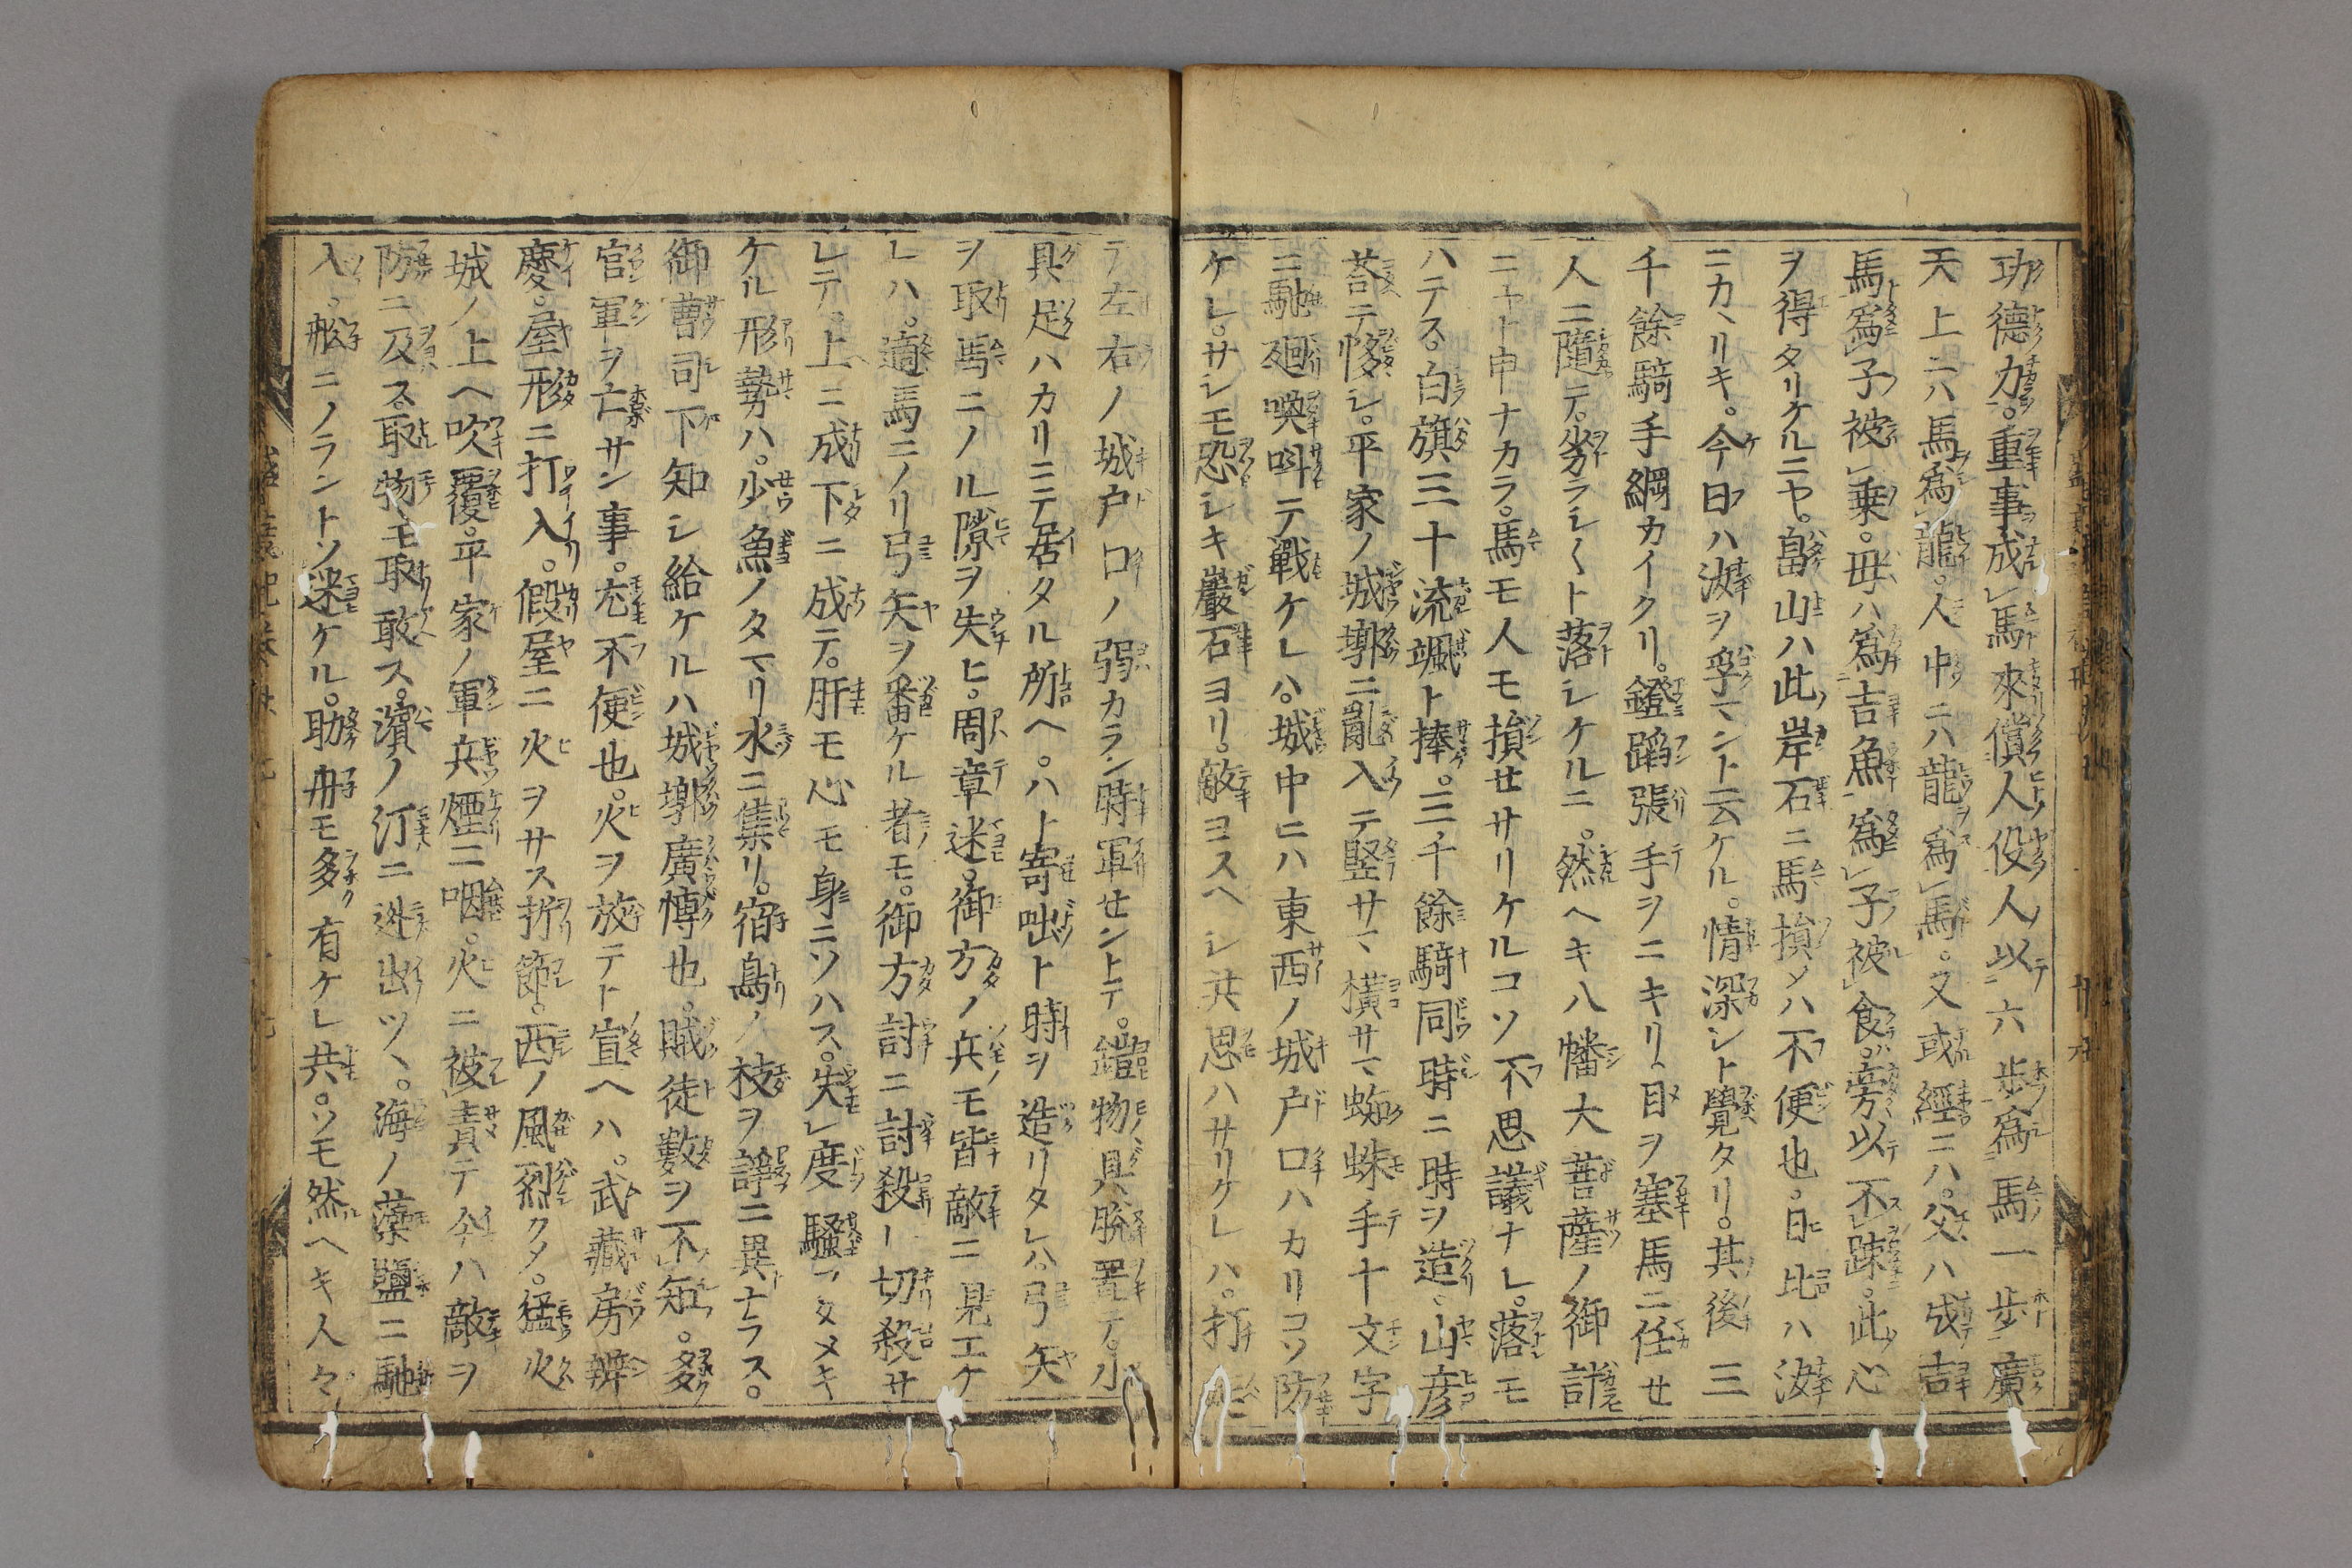 功德力。重事成馬來償人役人以六步爲馬一步廣
天上ニハ馬爲龍。人中ニハ龍爲馬。又或經ニハ。父ハ成吉
馬爲子被乗。毋ハ爲吉魚爲子被食。旁以不踈。此心
ヲ得タリケルニヤ。畠山ハ此岸石ニ馬損メハ不便也。日比ハ汝
ニカヽリキ。今日ハ汝ヲ孚マント云ケル。情深シト覺タリ。其後三
千餘騎手綱カイクリ。鐙蹈張手ヲニキリ、目ヲ塞馬ニ任せ
人ニ隨テ。劣ラシ〱ト落シケルニ。然ヘキ八幡大菩薩ノ御計
ニヤト申ナカラ。馬モ人モ損せサリケルコソ不思議ナレ。落モ
ハテス。白旗三十流颯ト捧。三千餘騎同時ニ時ヲ造、山彦
荅テ夥シ。平家ノ城墎ニ亂入テ竪サマ横サマ蜘蛛手十文字
ニ馳廻喚叫テ戰ケレハ。城中ニハ東西ノ城戸口ハカリコソ防
ケレ。サシモ恐シキ巖石ヨリ。敵ヨスヘシ共思ハサリケレハ。打
テ左右ノ城戸口ノ弱カラン時軍せントテ。鎧物具脱置テ。小
具足ハカリニテ居タル所ヘ。ハト寄咄ト時ヲ造リタレハ。弓矢
ヲ取馬ニノル隙ヲ失ヒ。周章迷。御方ノ兵モ皆敵ニ見エケ
レハ。適馬ニノリ弓矢ヲ番ケル者モ。御方討ニ討殺ー切殺サ
レテ。上ニ成下ニ成テ。肝モ心モ身ニソハス。失度騷フタメキ
ケル形勢ハ。少魚ノタマリ水ニ集リ。宿鳥ノ枝ヲ諍ニ異ナラス。
御曹司下知シ給ケルハ城墎廣博也。賊徒數ヲ不知。多
官軍ヲ亡サン事。尤不便也。火ヲ放テト宣ヘハ。武藏房辨
慶。屋形ニ打入。假屋ニ火ヲサス折節。西ノ風烈クメ。猛火
城ノ上ヘ吹覆。平家ノ軍兵煙ニ咽。火ニ被責テ今ハ敵ヲ
防ニ及ス。取物モ取敢ス。濱ノ汀ニ迯出ツヽ。海ノ藻鹽ニ馳
入。舩ニノラントソ迷ケル。助舟モ多有ケレ共。ソモ然ヘキ人々